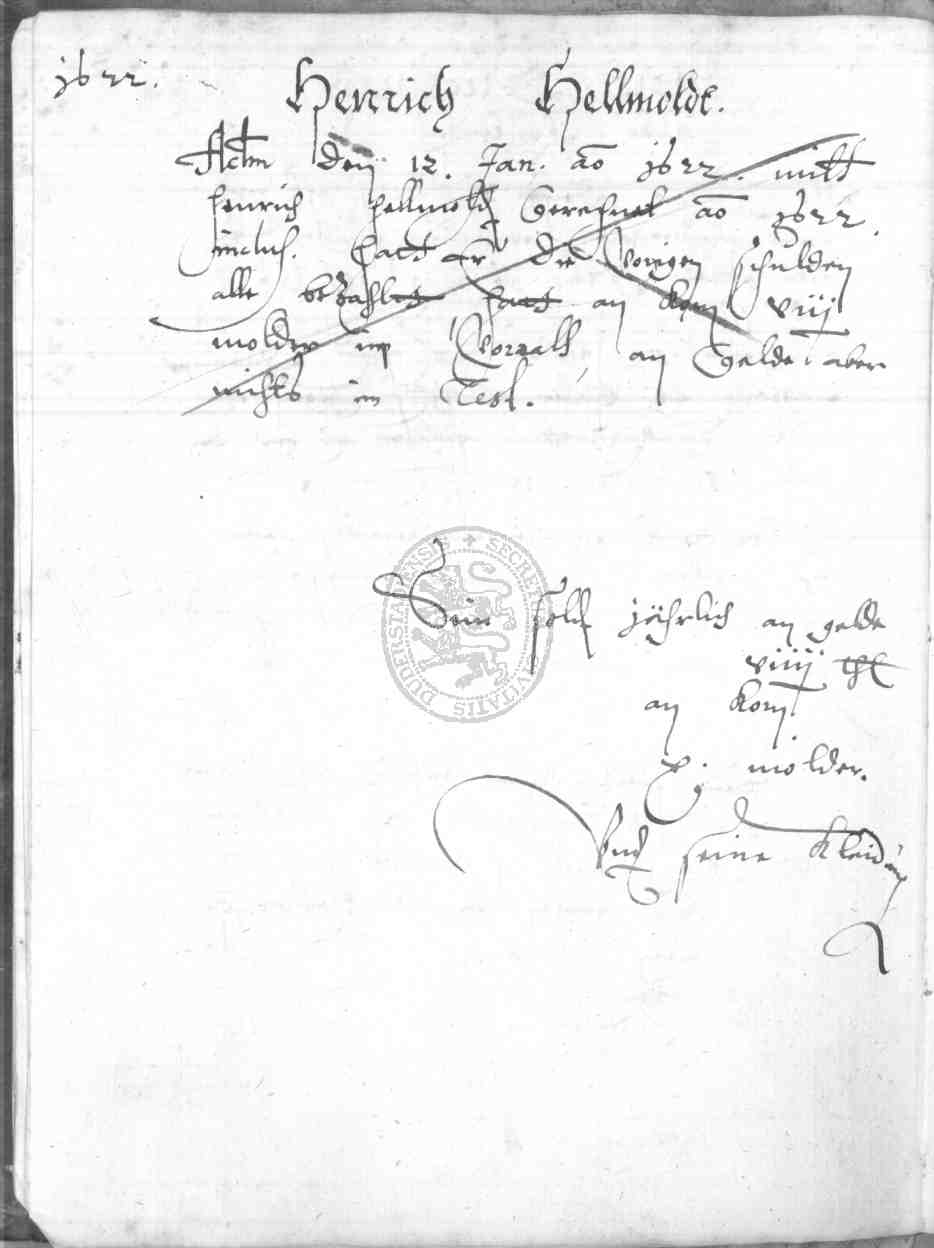 1622.
Henrich Hellmoldt.
Actm den 12. Jan. ao 1622. mitt
henrich hellmoldt gerechnet ao 1622.
inclus. hatt er die Vorigen schulden
alle bezahlt hatt an Korn viij
molder im Vorrath, an Gelde aber
nichts im Rest.
SECRET CIVITATIS DUDERSTADENSIS
soll jährlich an gelde
viiij thl
an Korn
x molder.
Vnd seine Kleidung